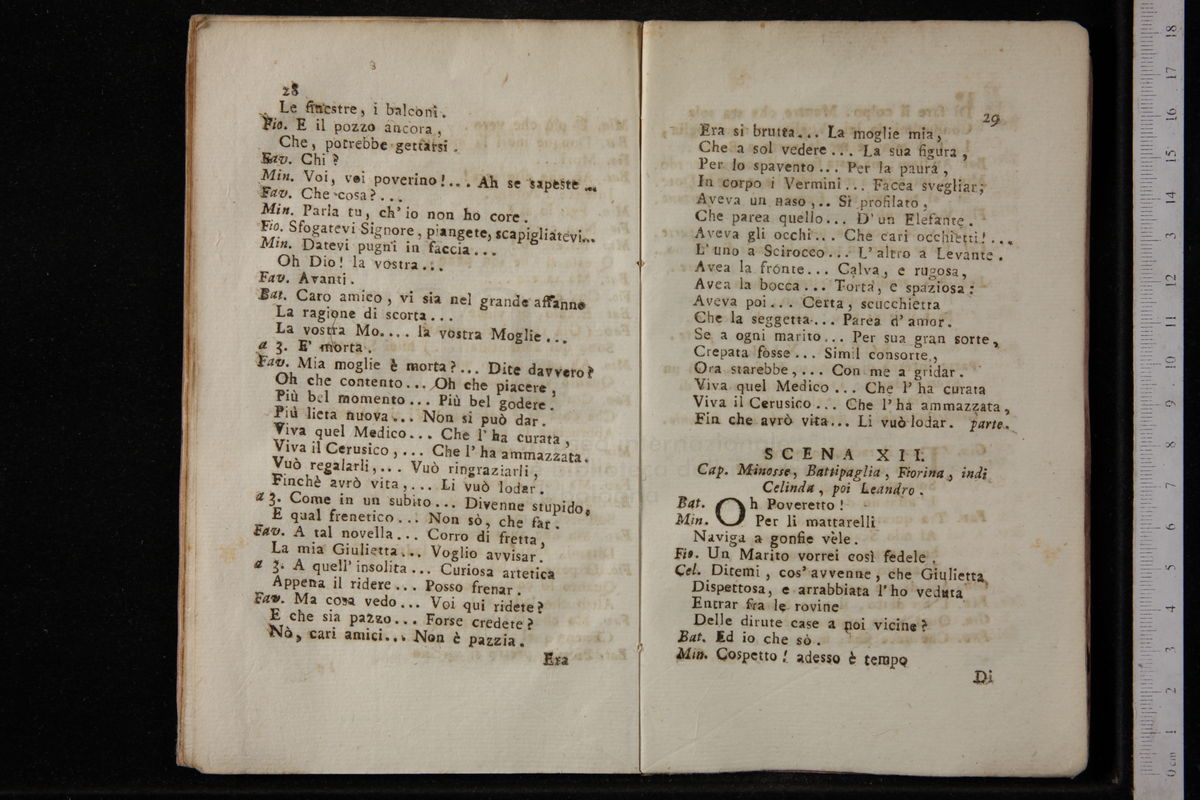 28
Le finestre, i balconi.
Fio. E il pozzo ancora,
Che, potrebbe gettarsi.
Fav. Chi?
Min. Voi, voi poverino!... Ah se sapeste...
Fav. Che cosa?...
Min. Parla tu, ch'io non ho core.
Fio. Sfogatevi Signore, piangete, scapigliatevi...
Min. Datevi pugni in faccia...
Oh Dio! la vostra...
Fav. Avanti.
Bat. Caro amico, vi sia nel grande affanno
La ragione di scorta...
La vostra Mo.... la vostra Moglie...
a 3. E' morta.
Fav. Mia moglie è morta?... Dite davvero?
Oh che contento... Oh che piacere,
Più bel momento... Più bel godere.
Più lieta nuova... Non si può dar.
Viva quel Medico... Che l'ha curata,
Viva il Cerusico,... Che l'ha ammazzata.
Vuò regalarli,... Vuò ringraziarli,
Finchè avrò vita,... Li vuò lodar.
a 3. Come in un subito... Divenne stupido,
E qual frenetico... Non sò, che far.
Fav. A tal novella... Corro di fretta,
La mia Giulietta... Voglio avvisar.
a 3. A quell'insolita... Curiosa artetica
Appena il ridere... Posso frenar.
Fav. Ma cosa vedo... Voi qui ridete?
E che sia pazzo... Forse credete?
Nò, cari amici... Non è pazzia.
Era
29
Era si brutta... La moglie mia,
Che a sol vedere... La sua figura,
Per lo spavento... Per la paura,
In corpo i Vermini... Facea svegliar;
Aveva un naso,.. Sì profilato,
Che parea quello... D'un Elefante.
Aveva gli occhi... Che cari occhietti!...
L'uno a Scirocco... L'altro a Levante.
Avea la fronte... Calva, e rugosa,
Avea la bocca... Torta, e spaziosa:
Aveva poi... Certa, scucchietta
Che la seggetta... Parea d'amor.
Se a ogni marito... Per sua gran sorte,
Crepata fosse... Simil consorte,
Ora starebbe,... Con me a gridar.
Viva quel Medico... Che l'ha curata
Viva il Cerusico... Che l'ha ammazzata,
Fin che avrò vita... Li vuò lodar. parte.
SCENA XII.
Cap. Minosse, Battipaglia, Fiorina, indi
Celinda, poi Leandro.
Bat. Oh Poveretto!
Min. Per li mattarelli
Naviga a gonfie vèle.
Fio. Un Marito vorrei così fedele.
Cel. Ditemi, cos'avvenne, che Giulietta
Dispettosa, e arrabbiata l'ho veduta
Entrar fra le rovine
Delle dirute case a noi vicine?
Bat. Ed io che sò.
Min. Cospetto! adesso è tempo
Di